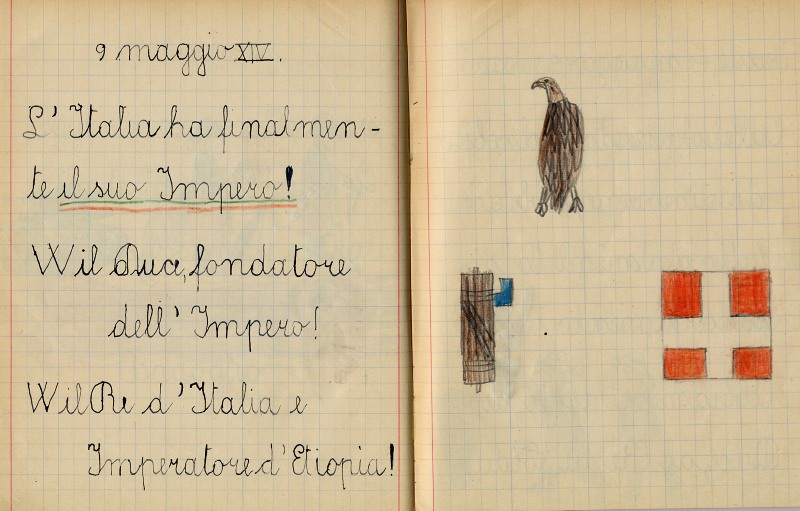 9 maggio XIV.
L'Italia ha finalmen-
te il suo Impero!
W il Duce, fondatore
dell'Impero!
W il Re d'Italia e
Imperatore d'Etiopia!